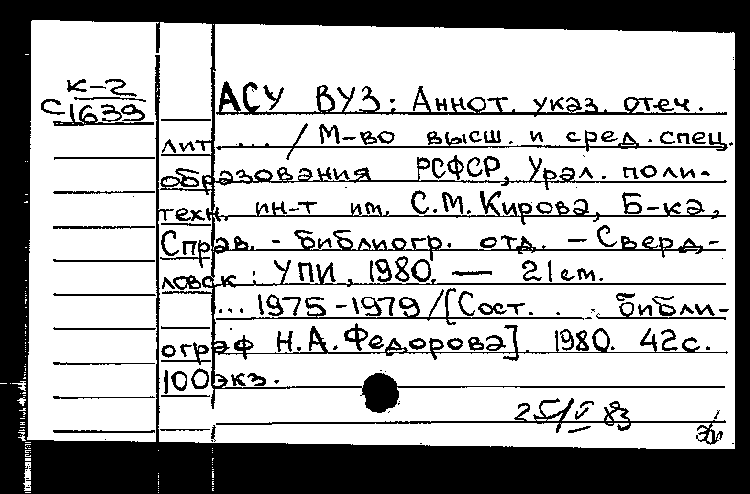 К-2
С1639
АСУ ВУЗ: Аннот. указ. отеч.
лит. ... / М-во высш. и сред. спец.
образования РСФСР, Урал. поли-
техн. ин-т им. С.М. Кирова, Б-ка,
Справ. - библиогр. отд. — Сверд-
ловск: УПИ, 1980. — 21 см.
... 1975-1979 / [Сост. . . библи-
ограф Н.А. Федорова]. 1980. 42 с.
100 экз.
25/V 83